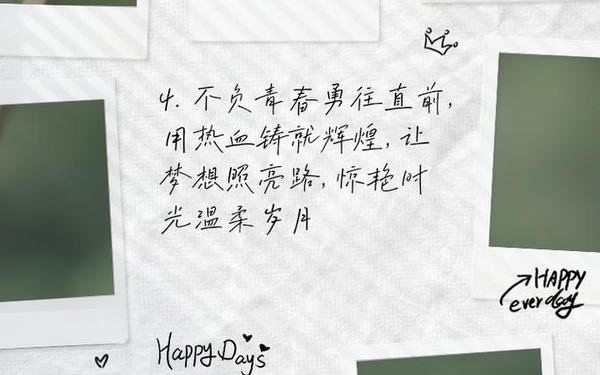 4. 不负青春勇往直前,
用热血铸就辉煌, 让
梦想照亮路, 惊艳时
光温柔岁月
HAPPY
everday
Happy Days